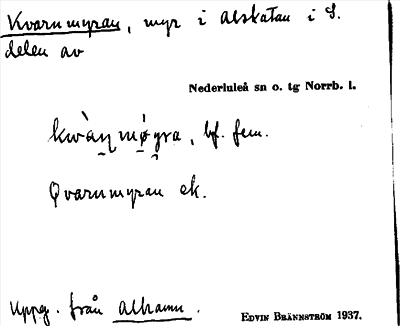 Kvarnmyran, myr i Alskatan i S.
delen av
Nederluleå sn o. tg Norrb. l.
bf. fem.
Qvarnmyran ek.
Uppg. från Alhamn.
EDVIN BRÄNNSTRÖM 1937.